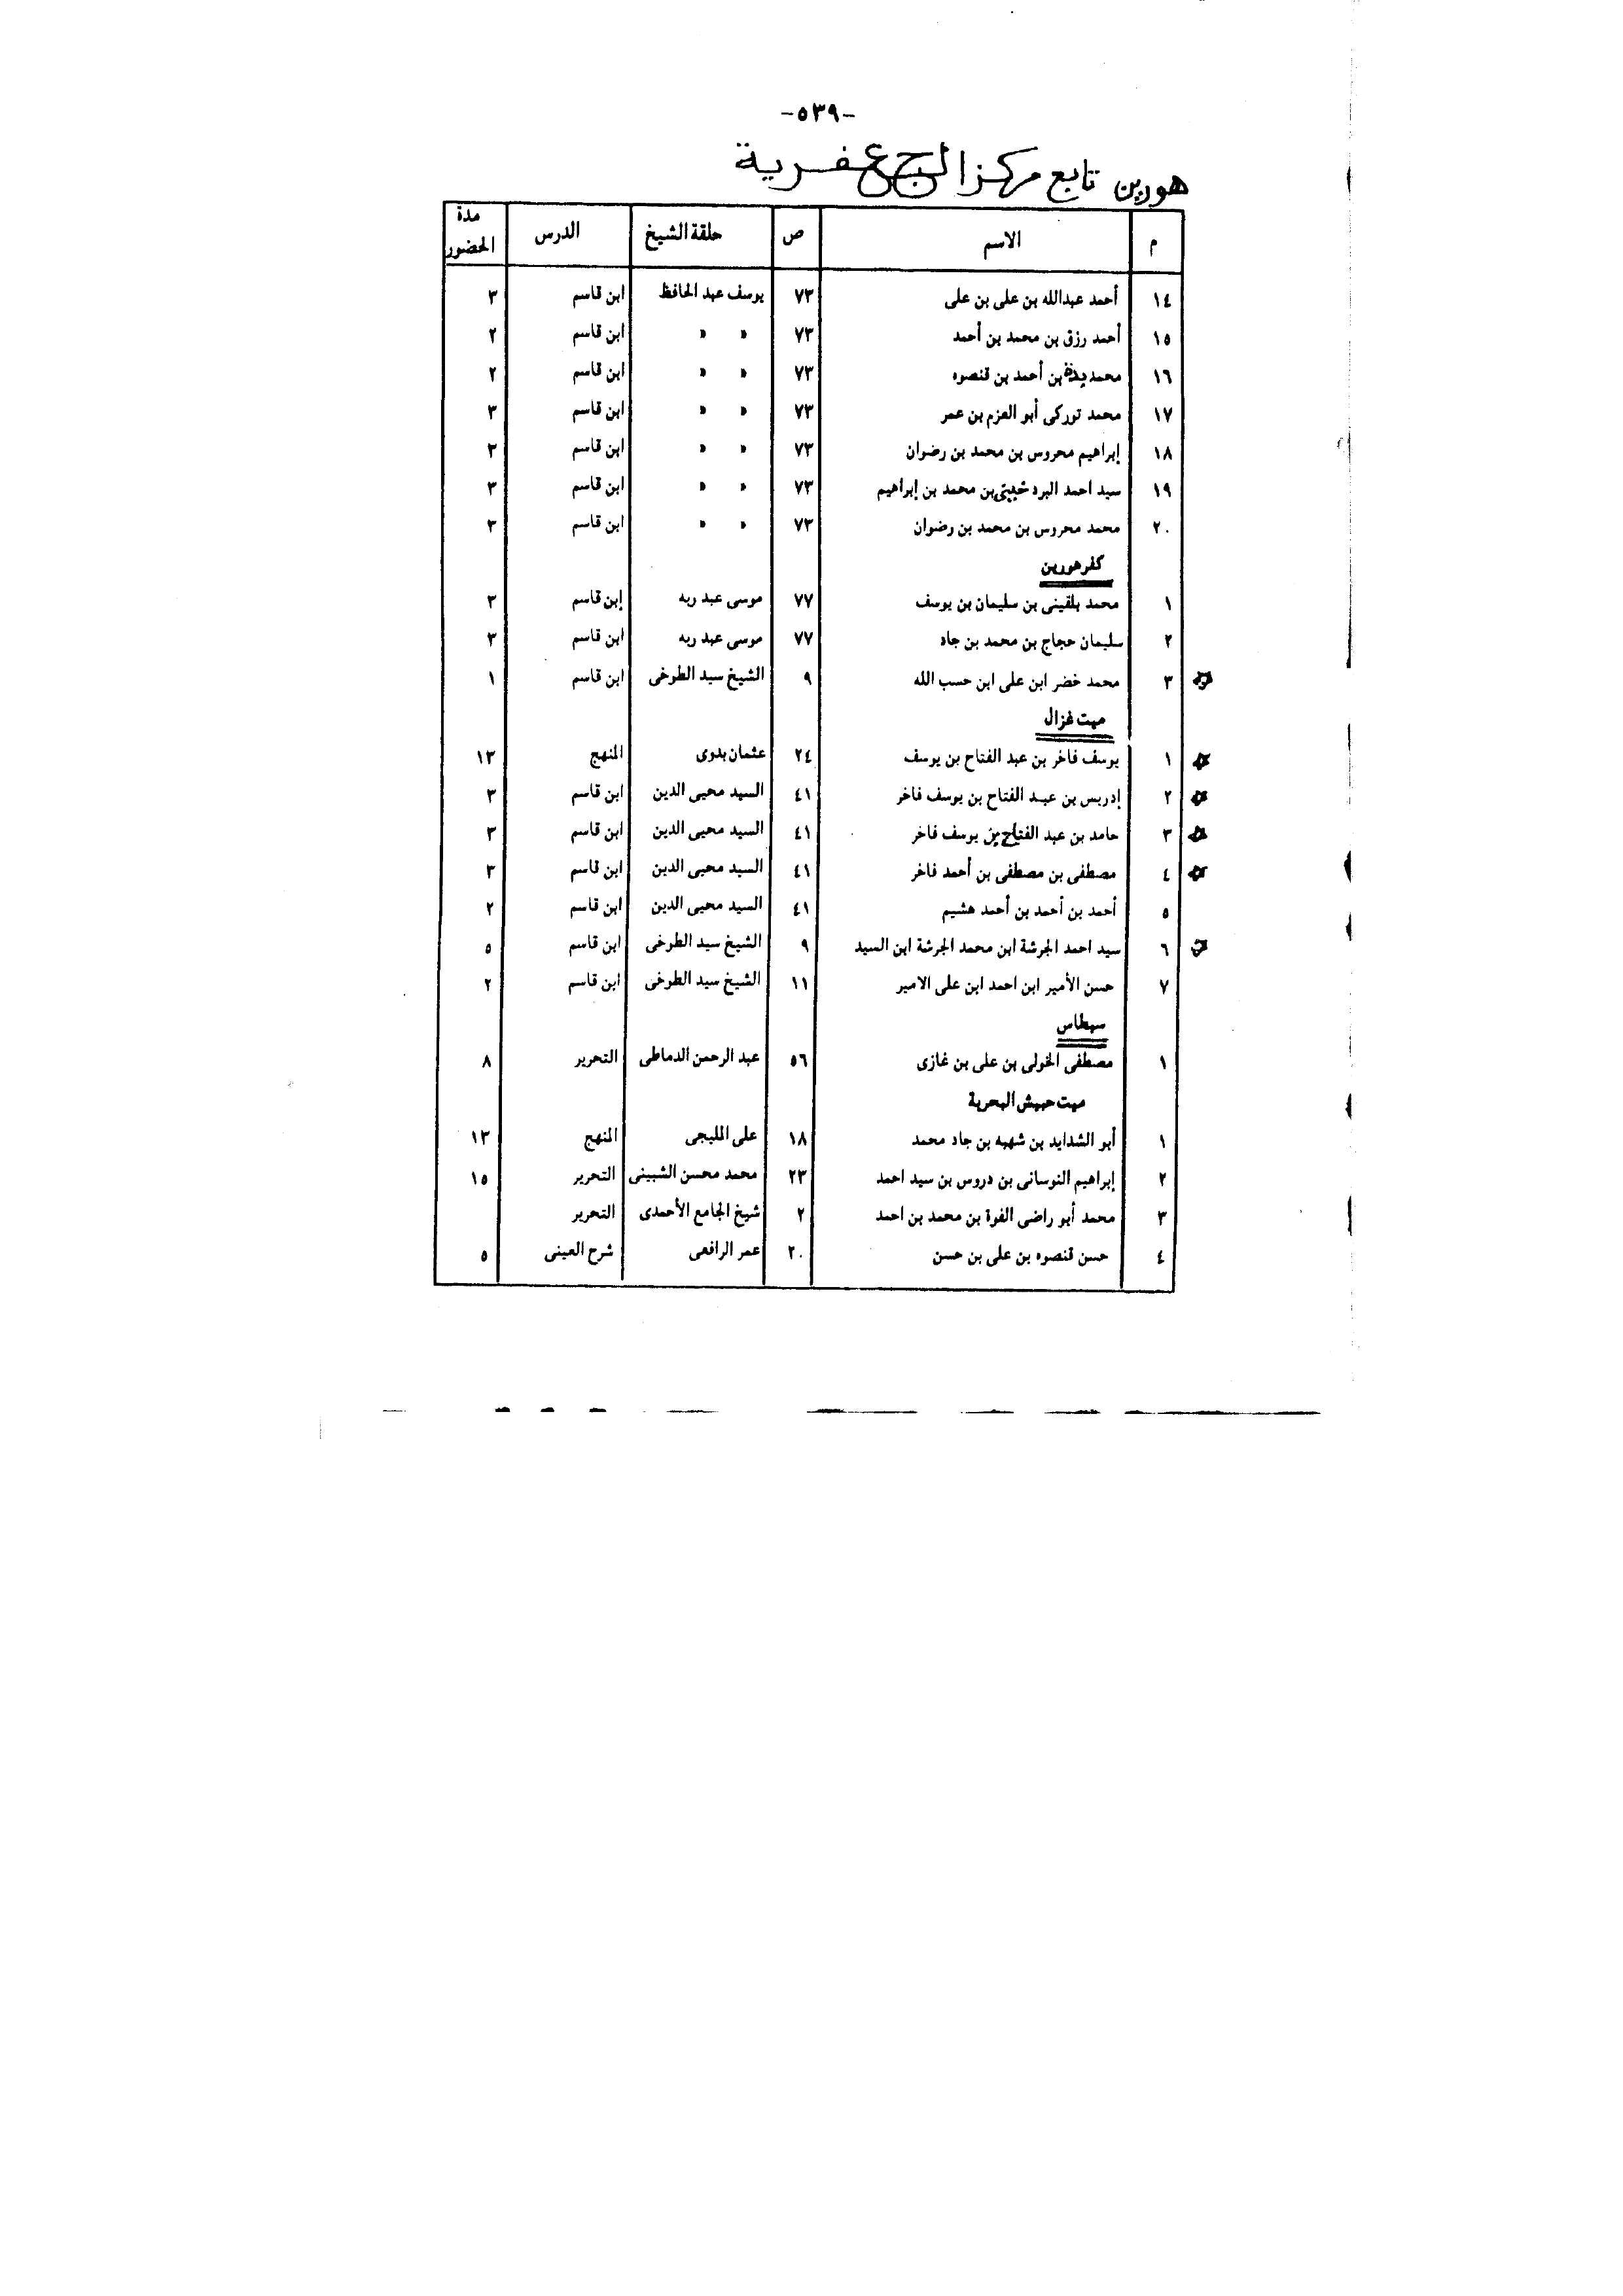 -٥٣٩-
هورين تابع مركز الجعفرية
م الاسم ص حلقة الشيخ الدرس مدة الحضور
١٤ أحمد عبدالله بن على بن على ٧٣ يوسف عبد الحافظ ابن قاسم ٣
١٥ أحمد رزق بن محمد بن أحمد ٧٣ " " ابن قاسم ٢
١٦ محمد بن أحمد بن قنصوه ٧٣ " " ابن قاسم ٢
١٧ محمد توركى أبو العزم بن عمر ٧٣ " " ابن قاسم ٣
١٨ إبراهيم محروس بن محمد بن رضوان ٧٣ " " ابن قاسم ٣
١٩ سيد احمد بن محمد بن إبراهيم ٧٣ " " ابن قاسم ٣
٢٠ محمد محروس بن محمد بن رضوان ٧٣ " " ابن قاسم ٣
كفر هورين
١ محمد بلقينى بن سليمان بن يوسف ٧٧ موسى عبد ربه إبن قاسم ٣
٢ سليمان حجاج بن محمد بن جاد ٧٧ موسى عبد ربه ابن قاسم ٣
٣ محمد خضر ابن على ابن حسب الله ٩ الشيخ سيد الطوخى ابن قاسم ١
ميت غزال
١ يوسف فاخر بن عبد الفتاح بن يوسف ٢٤ عثمان بدوى المنهج ١٣
٢ إدريس بن عبد الفتاح بن يوسف فاخر ٤١ السيد محيى الدين ابن قاسم ٣
٣ حامد بن عبد الفتاح بن يوسف فاخر ٤١ السيد محيى الدين ابن قاسم ٣
٤ مصطفى بن مصطفى بن أحمد فاخر ٤١ السيد محيى الدين ابن قاسم ٣
٥ أحمد بن أحمد بن أحمد هشيم ٤١ السيد محيى الدين ابن قاسم ٢
٦ سيد احمد الجرشة ابن محمد الجرشة ابن السيد ٩ الشيخ سيد الطوخى ابن قاسم ٥
٧ حسن الأمير ابن احمد ابن على الامير ١١ الشيخ سيد الطوخى ابن قاسم ٢
سبطاس
١ مصطفى الخولى بن على بن غازى ٥٦ عبد الرحمن الدماطى التحرير ٨
ميت حبيش البحرية
١ أبو الشدايد بن شهبه بن جاد محمد ١٨ على المليجى المنهج ١٣
٢ إبراهيم النوسانى بن دروس بن سيد احمد ٢٣ محمد محسن الشبينى التحرير ١٥
٣ محمد أبو راضى الفوة بن محمد بن احمد ٢ شيخ الجامع الأحمدى التحرير
٤ حسن قنصوه بن على بن حسن ٢٠ عمر الرافعى شرح العينى ٥